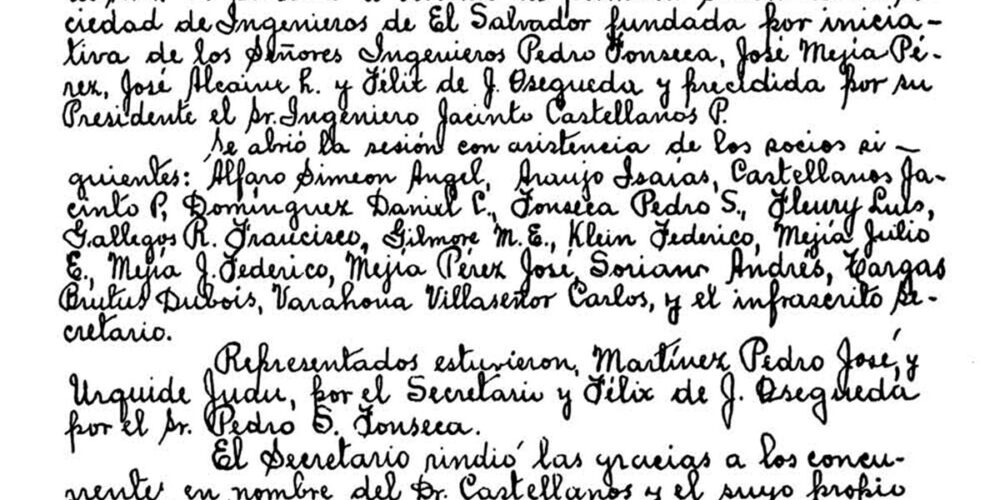 ciedad de Ingenieros de El Salvador fundada por inicia-
tiva de los Señores Ingenieros Pedro Fonseca, José Mejía Pé-
rez, José Alcaine h. y Félix de J. Osegueda y precidida por su
Presidente el Sr. Ingeniero Jacinto Castellanos P.
Se abrió la sesión con asistencia de los socios si-
guientes: Alfaro Simeon Angel, Araujo Isaías, Castellanos Ja-
cinto P., Domínguez Daniel C., Fonseca Pedro S., Fleury Luis,
Gallegos R. Francisco, Gilmore M. E., Klein Federico, Mejía Julio
E., Mejía J. Federico, Mejía Pérez José, Soriano Andrés, Vargas
Brutus Dubois, Varahona Villaseñor Carlos, y el infrascrito Se-
cretario.
Representados estuvieron, Martínez Pedro José, y
Urquide por el Secretario y Félix de J. Osegueda
por el Sr. Pedro S. Fonseca.
El Secretario rindió las gracias a los concu-
rrente en nombre del Castellanos y el suyo propio